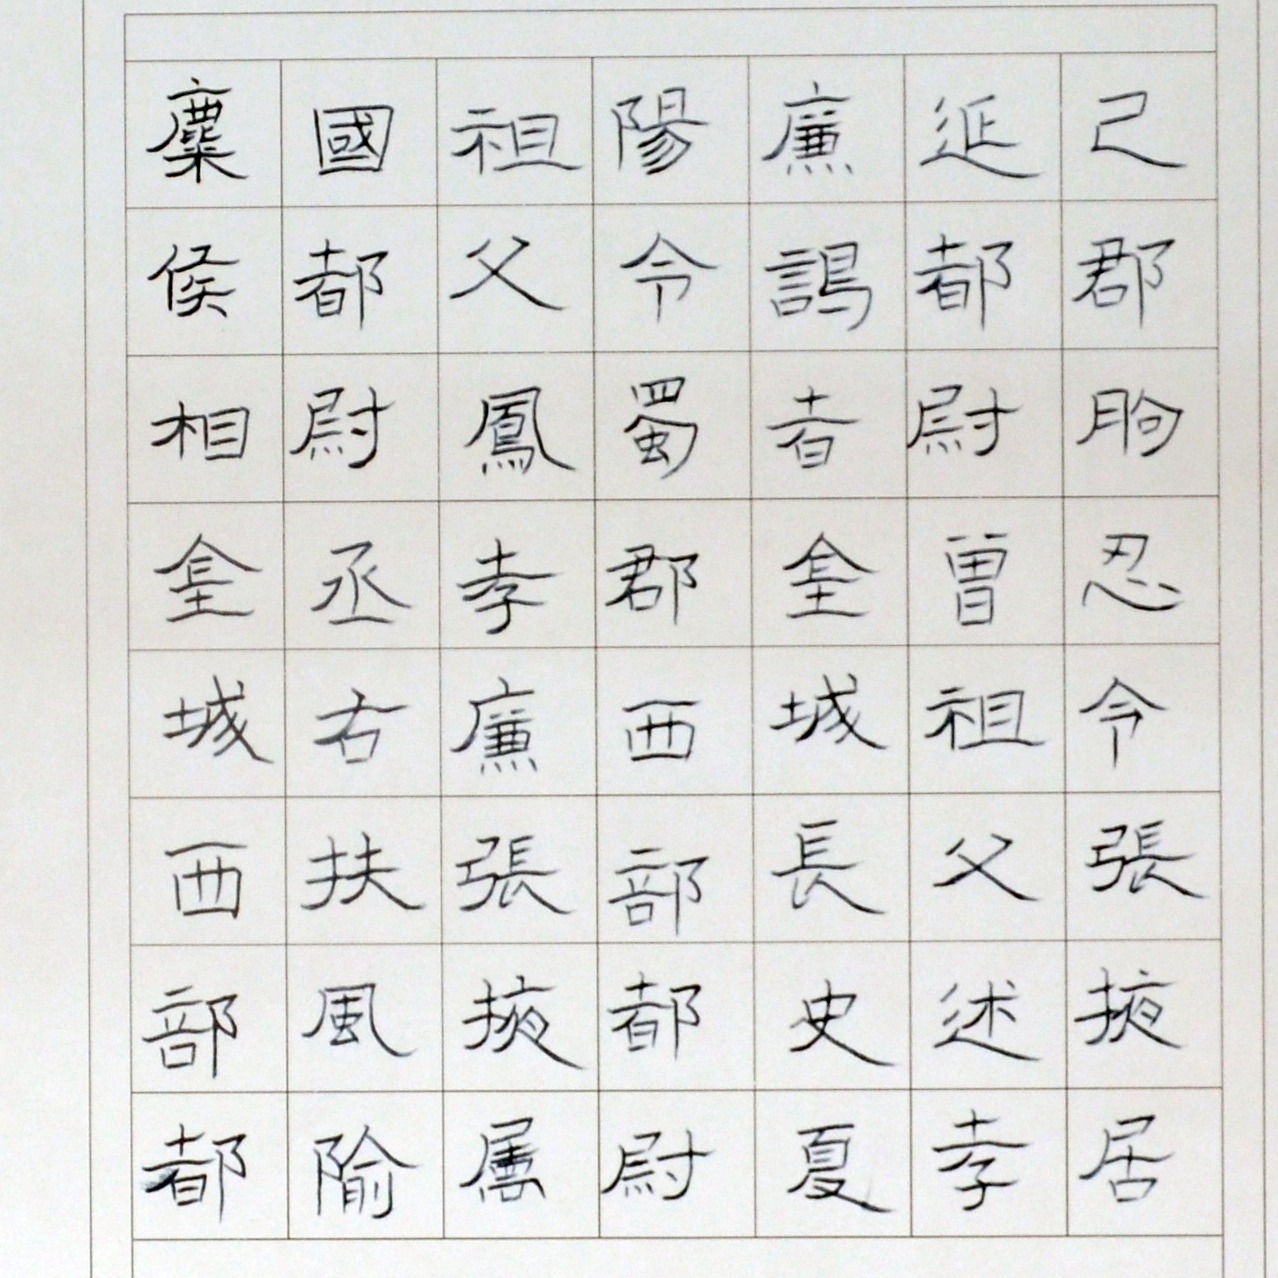 己郡朐忍令張掖居
延都尉曾祖父述孝
廉謁者金城長史夏
陽令蜀郡西部都尉
祖父鳳孝廉張掖屬
國都尉丞右扶風隃
麋侯相金城西部都